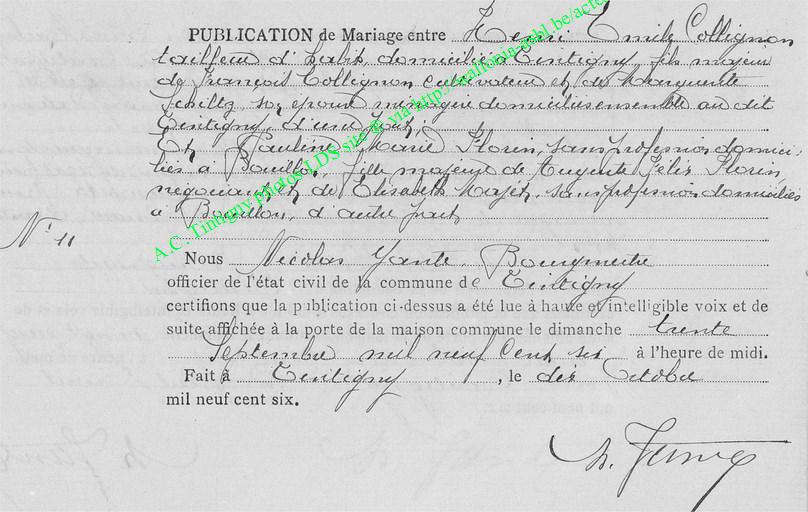 PUBLICATION de Mariage entre Henri Emile Collignon
tailleur d'habits domicilié à Tintigny, fils majeur
de François Collignon cultivateur et de Marguerite
son épouse ménagère domiciliés ensemble au dit
Tintigny, d'une part;
Et Pauline Marie Florin, sans profession domici-
liée à Bouillon, fille majeure de Auguste Félix Florin,
négociant et de Elisabeth sans profession domiciliés
à Bouillon, d'autre part
N° 11
Nous Nicolas Bourgmestre
officier de l'état civil de la commune de Tintigny
certifions que la publication ci-dessus a été lue à haute et intelligible voix et de
suite affichée à la porte de la maison commune le dimanche trente
Septembre mil neuf cent six à l'heure de midi.
Fait à Tintigny, le dix Octobre
mil neuf cent six.
A.C. Tintigny photos LDS site © via http://wallonia-gehl.be/acte